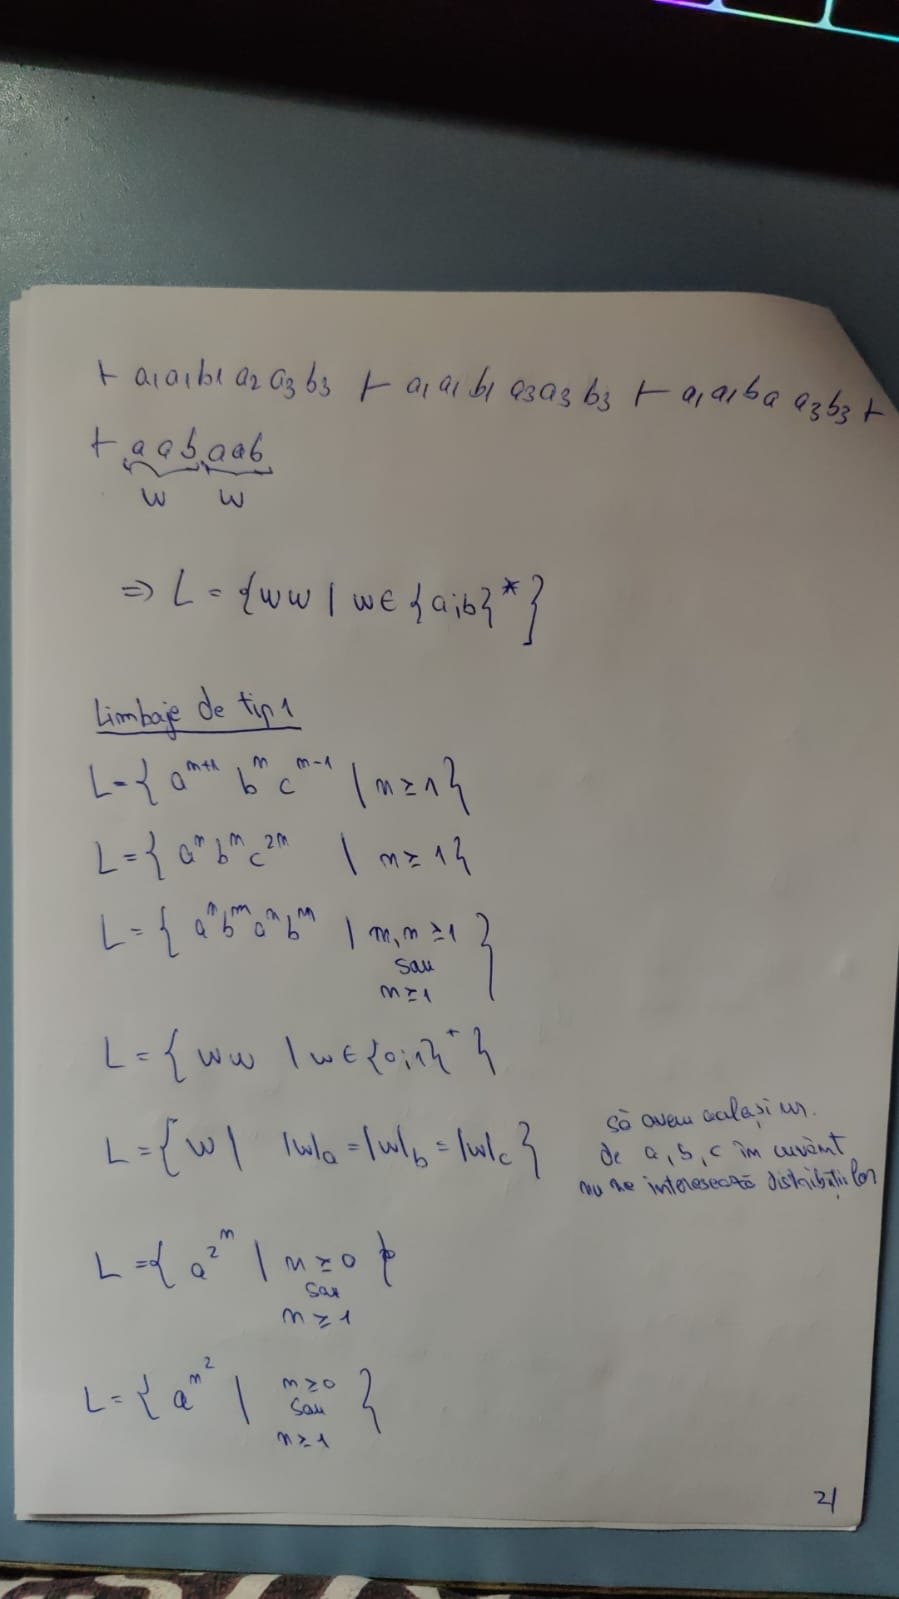 ⊢ a₁a₁b₁a₂a₃b₃ ⊢ a₁a₁b₁a₃a₃b₃ ⊢ a₁a₁ba a₃b₃ ⊢
⊢ aabaab
w w
⇒ L = {ww | w∈{a;b}*}
Limbaje de tip 1
L={aⁿ⁺¹ bⁿ cⁿ⁻¹ | n≥1}
L={aⁿbⁿc²ⁿ | n≥1}
L={aⁿbᵐaⁿbᵐ | m,n≥1
sau
n≥1}
L={ww | w∈{0;1}⁺}
L={w | |w|a=|w|b=|w|c}
să avem același nr.
de a, b, c în cuvânt
nu ne interesează distribuțiilor
L={a^2^n | n≥0
sau
n≥1}
L={a^n^2 | n≥0
sau
n≥1}
21